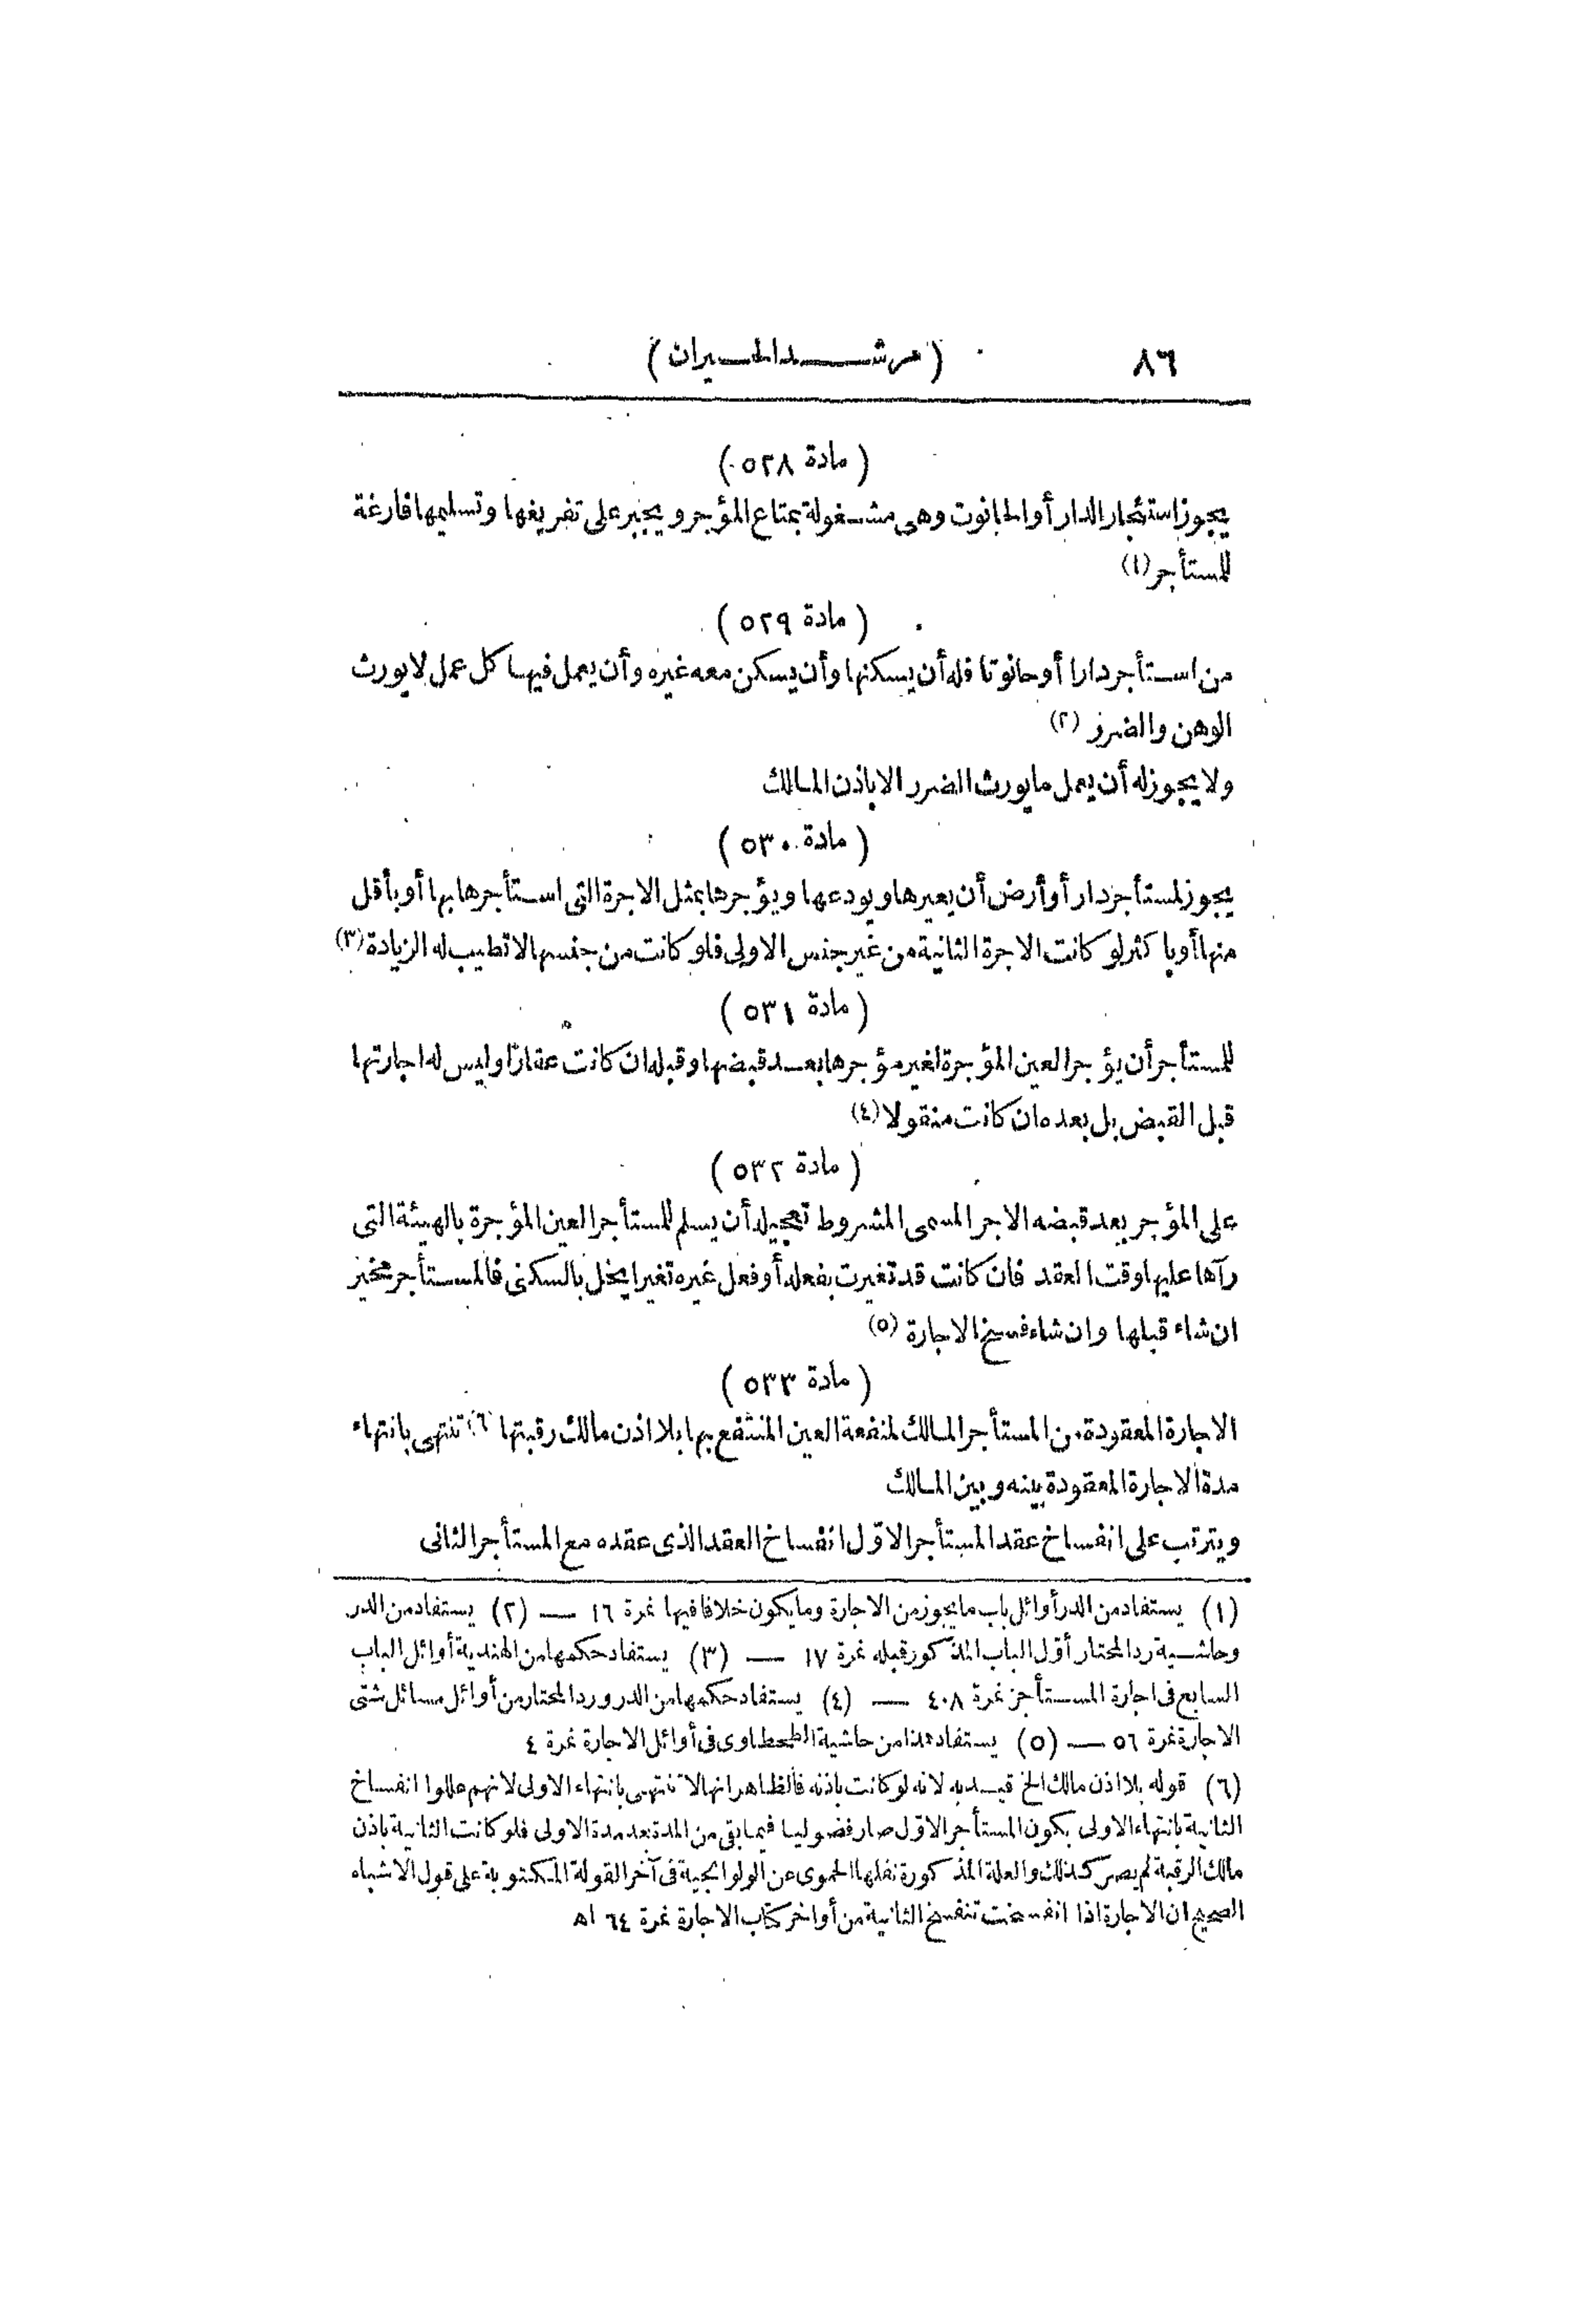 ٨٦ (مرشد الحيران)
(مادة ٥٢٨)
يجوز استئجار الدار أو الحانوت وهى مشغولة بمتاع المؤجر ويجبر على تفريغها وتسليمها فارغة
للمستأجر (١)
(مادة ٥٢٩)
من استأجر دارا أو حانوتا فله أن يسكنها وأن يسكن معه غيره وأن يعمل فيها كل عمل لا يورث
الوهن والضرر (٢)
ولا يجوز له أن يعمل ما يورث الضرر الا باذن المالك
(مادة ٥٣٠)
يجوز لمستأجر دار أو أرض أن يعيرها ويودعها ويؤجرها بمثل الاجرة التى استأجرها بها أو بأقل
منها أو باكثر لو كانت الاجرة الثانية من غير جنس الاولى فلو كانت من جنسها لا تطيب له الزيادة (٣)
(مادة ٥٣١)
للمستأجر أن يؤجر العين المؤجرة لغير مؤجرها بعد قبضها وقبله ان كانت عقارا وليس له اجارتها
قبل القبض بل بعده ان كانت منقولا (٤)
(مادة ٥٣٢)
على المؤجر بعد قبضه الاجر المسمى المشروط تعجيله أن يسلم للمستأجر العين المؤجرة بالهيئة التى
رآها عليها وقت العقد فان كانت قد تغيرت بفعله أو فعل غيره تغيرا يخل بالسكنى فالمستأجر مخير
ان شاء قبلها وان شاء فسخ الاجارة (٥)
(مادة ٥٣٣)
الاجارة المعقودة من المستأجر المالك لمنفعة العين المنتفع بها بلا اذن مالك رقبتها (٦) تنتهى بانتهاء
مدة الاجارة المعقودة بينه وبين المالك
ويترتب على انفساخ عقد المستأجر الاوّل انفساخ العقد الذى عقده مع المستأجر الثانى
(١) يستفاد من الدر أوائل باب ما يجوز من الاجارة وما يكون خلافا فيها نمرة ١٦ — (٢) يستفاد من الدر
وحاشية رد المحتار أوّل الباب المذكور قبله نمرة ١٧ — (٣) يستفاد حكمها من الهندية أوائل الباب
السابع فى اجارة المستأجر نمرة ٤٠٨ — (٤) يستفاد حكمها من الدر ورد المحتار من أوائل مسائل شتى
الاجارة نمرة ٥٦ — (٥) يستفاد هذا من حاشية الطحطاوى فى أوائل الاجارة نمرة ٤
(٦) قوله بلا اذن مالك الخ قيد به لانه لو كانت باذنه فالظاهر انها لا تنتهى بانتهاء الاولى لانهم عللوا انفساخ
الثانية بانتهاء الاولى بكون المستأجر الاوّل صار فضوليا فيما بقى من المدة بعد مدة الاولى فلو كانت الثانية باذن
مالك الرقبة لم يصر كذلك والعلة المذكورة نقلها الحموى عن الولوالجية فى آخر القولة المكتوبة على قول الاشباه
الصحيح ان الاجارة اذا انفسخت تنفسخ الثانية من أواخر كتاب الاجارة نمرة ٦٤ اه